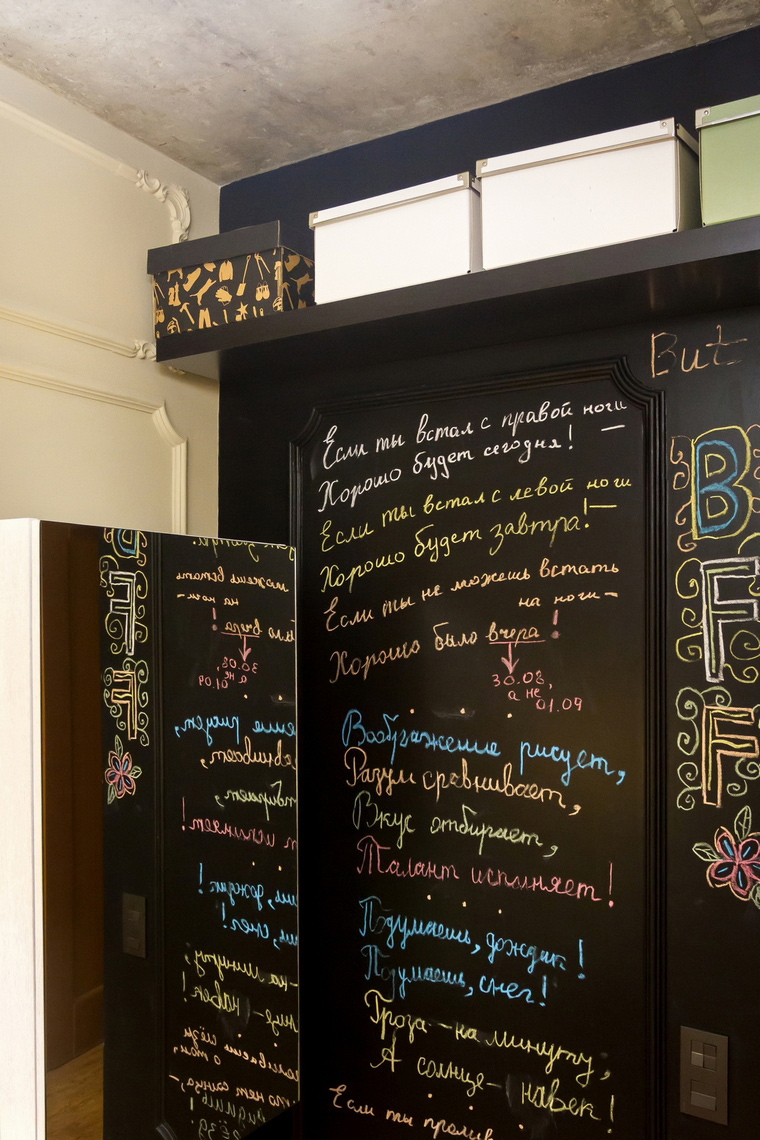 Если ты встал с правой ноги –
Хорошо будет сегодня!
Если ты встал с левой ноги –
Хорошо будет завтра!
Если ты не можешь встать
на ноги –
Хорошо было вчера!
30.08,
а не
01.09
Воображение рисует,
Разум сравнивает,
Вкус отбирает,
Талант исполняет!
Подумаешь, дождик!
Подумаешь, снег!
Гроза – на минуту,
А солнце – навек!
Если ты
But
B
F
F